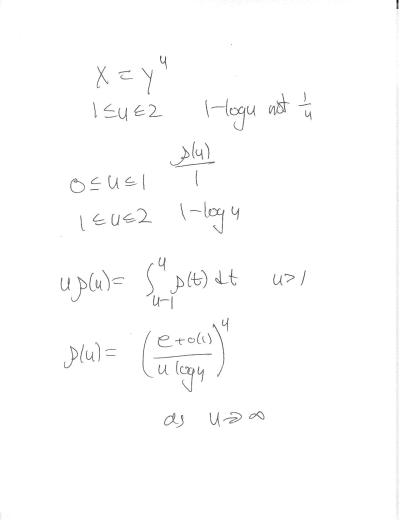 x = y^u
1 ≤ u ≤ 2 1-log u not 1/u
ρ(u)
0 ≤ u ≤ 1 1
1 ≤ u ≤ 2 1-log u
uρ(u) = ∫_{u-1}^{u} ρ(t) dt u > 1
ρ(u) = ((e+o(1))/(u log u))^u
as u → ∞